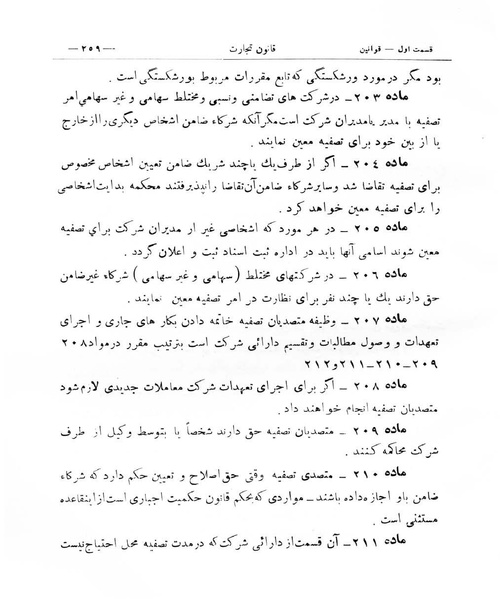 قسمت اول — قوانین قانون تجارت —۲۵۹—
بود مگر درمورد ورشکستگی که تابع مقررات مربوط بورشکستگی است .
ماده ۲۰۳ ـ درشرکت های تضامنی ونسبی ومختلط سهامی و غیر سهامی امر
تصفیه با مدیر یا مدیران شرکت است مگر آنکه شرکاء ضامن اشخاص دیگری را از خارج
یا از بین خود برای تصفیه معین نمایند .
ماده ۲۰۴ ـ اگر از طرف یك یا چند شریك ضامن تعیین اشخاص مخصوص
برای تصفیه تقاضا شد وسایر شرکاء ضامن آن تقاضا را نپذیرفتند محکمه بدایت اشخاصی
را برای تصفیه معین خواهد کرد .
ماده ۲۰۵ ـ در هر مورد که اشخاصی غیر از مدیران شرکت برای تصفیه
معین شوند اسامی آنها باید در اداره ثبت اسناد ثبت و اعلان گردد .
ماده ۲۰۶ ـ درشرکتهای مختلط ( سهامی و غیر سهامی ) شرکاء غیرضامن
حق دارند یك یا چند نفر برای نظارت در امر تصفیه معین نمایند .
ماده ۲۰۷ ـ وظیفه متصدیان تصفیه خاتمه دادن بکار های جاری و اجرای
تعهدات و وصول مطالبات وتقسیم دارائی شرکت است بترتیب مقرر درمواد ۲۰۸
۲۰۹ـ۲۱۰ـ۲۱۱و۲۱۲
ماده ۲۰۸ ـ اگر برای اجرای تعهدات شرکت معاملات جدیدی لازم شود
متصدیان تصفیه انجام خواهند داد .
ماده ۲۰۹ ـ متصدیان تصفیه حق دارند شخصاً یا بتوسط وکیل از طرف
شرکت محاکمه کنند .
ماده ۲۱۰ ـ متصدی تصفیه وقتی حق اصلاح و تعیین حکم دارد که شرکاء
ضامن باو اجازه داده باشند ـ مواردی که بحکم قانون حکمیت اجباری است از اینقاعده
مستثنی است .
ماده ۲۱۱ ـ آن قسمت از دارائی شرکت که درمدت تصفیه محل احتیاج نیست